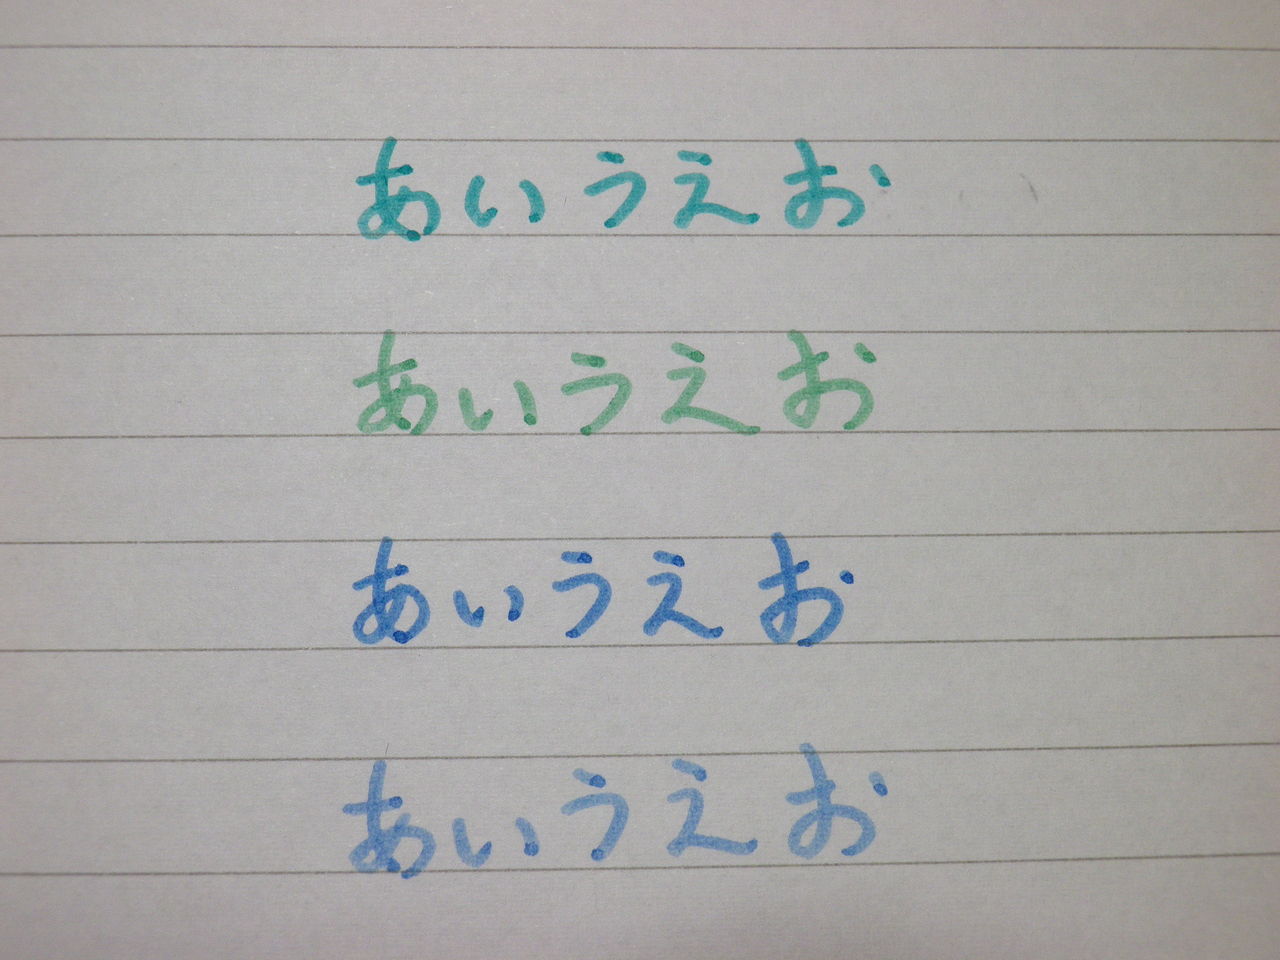 あいうえお
あいうえお
あいうえお
あいうえお